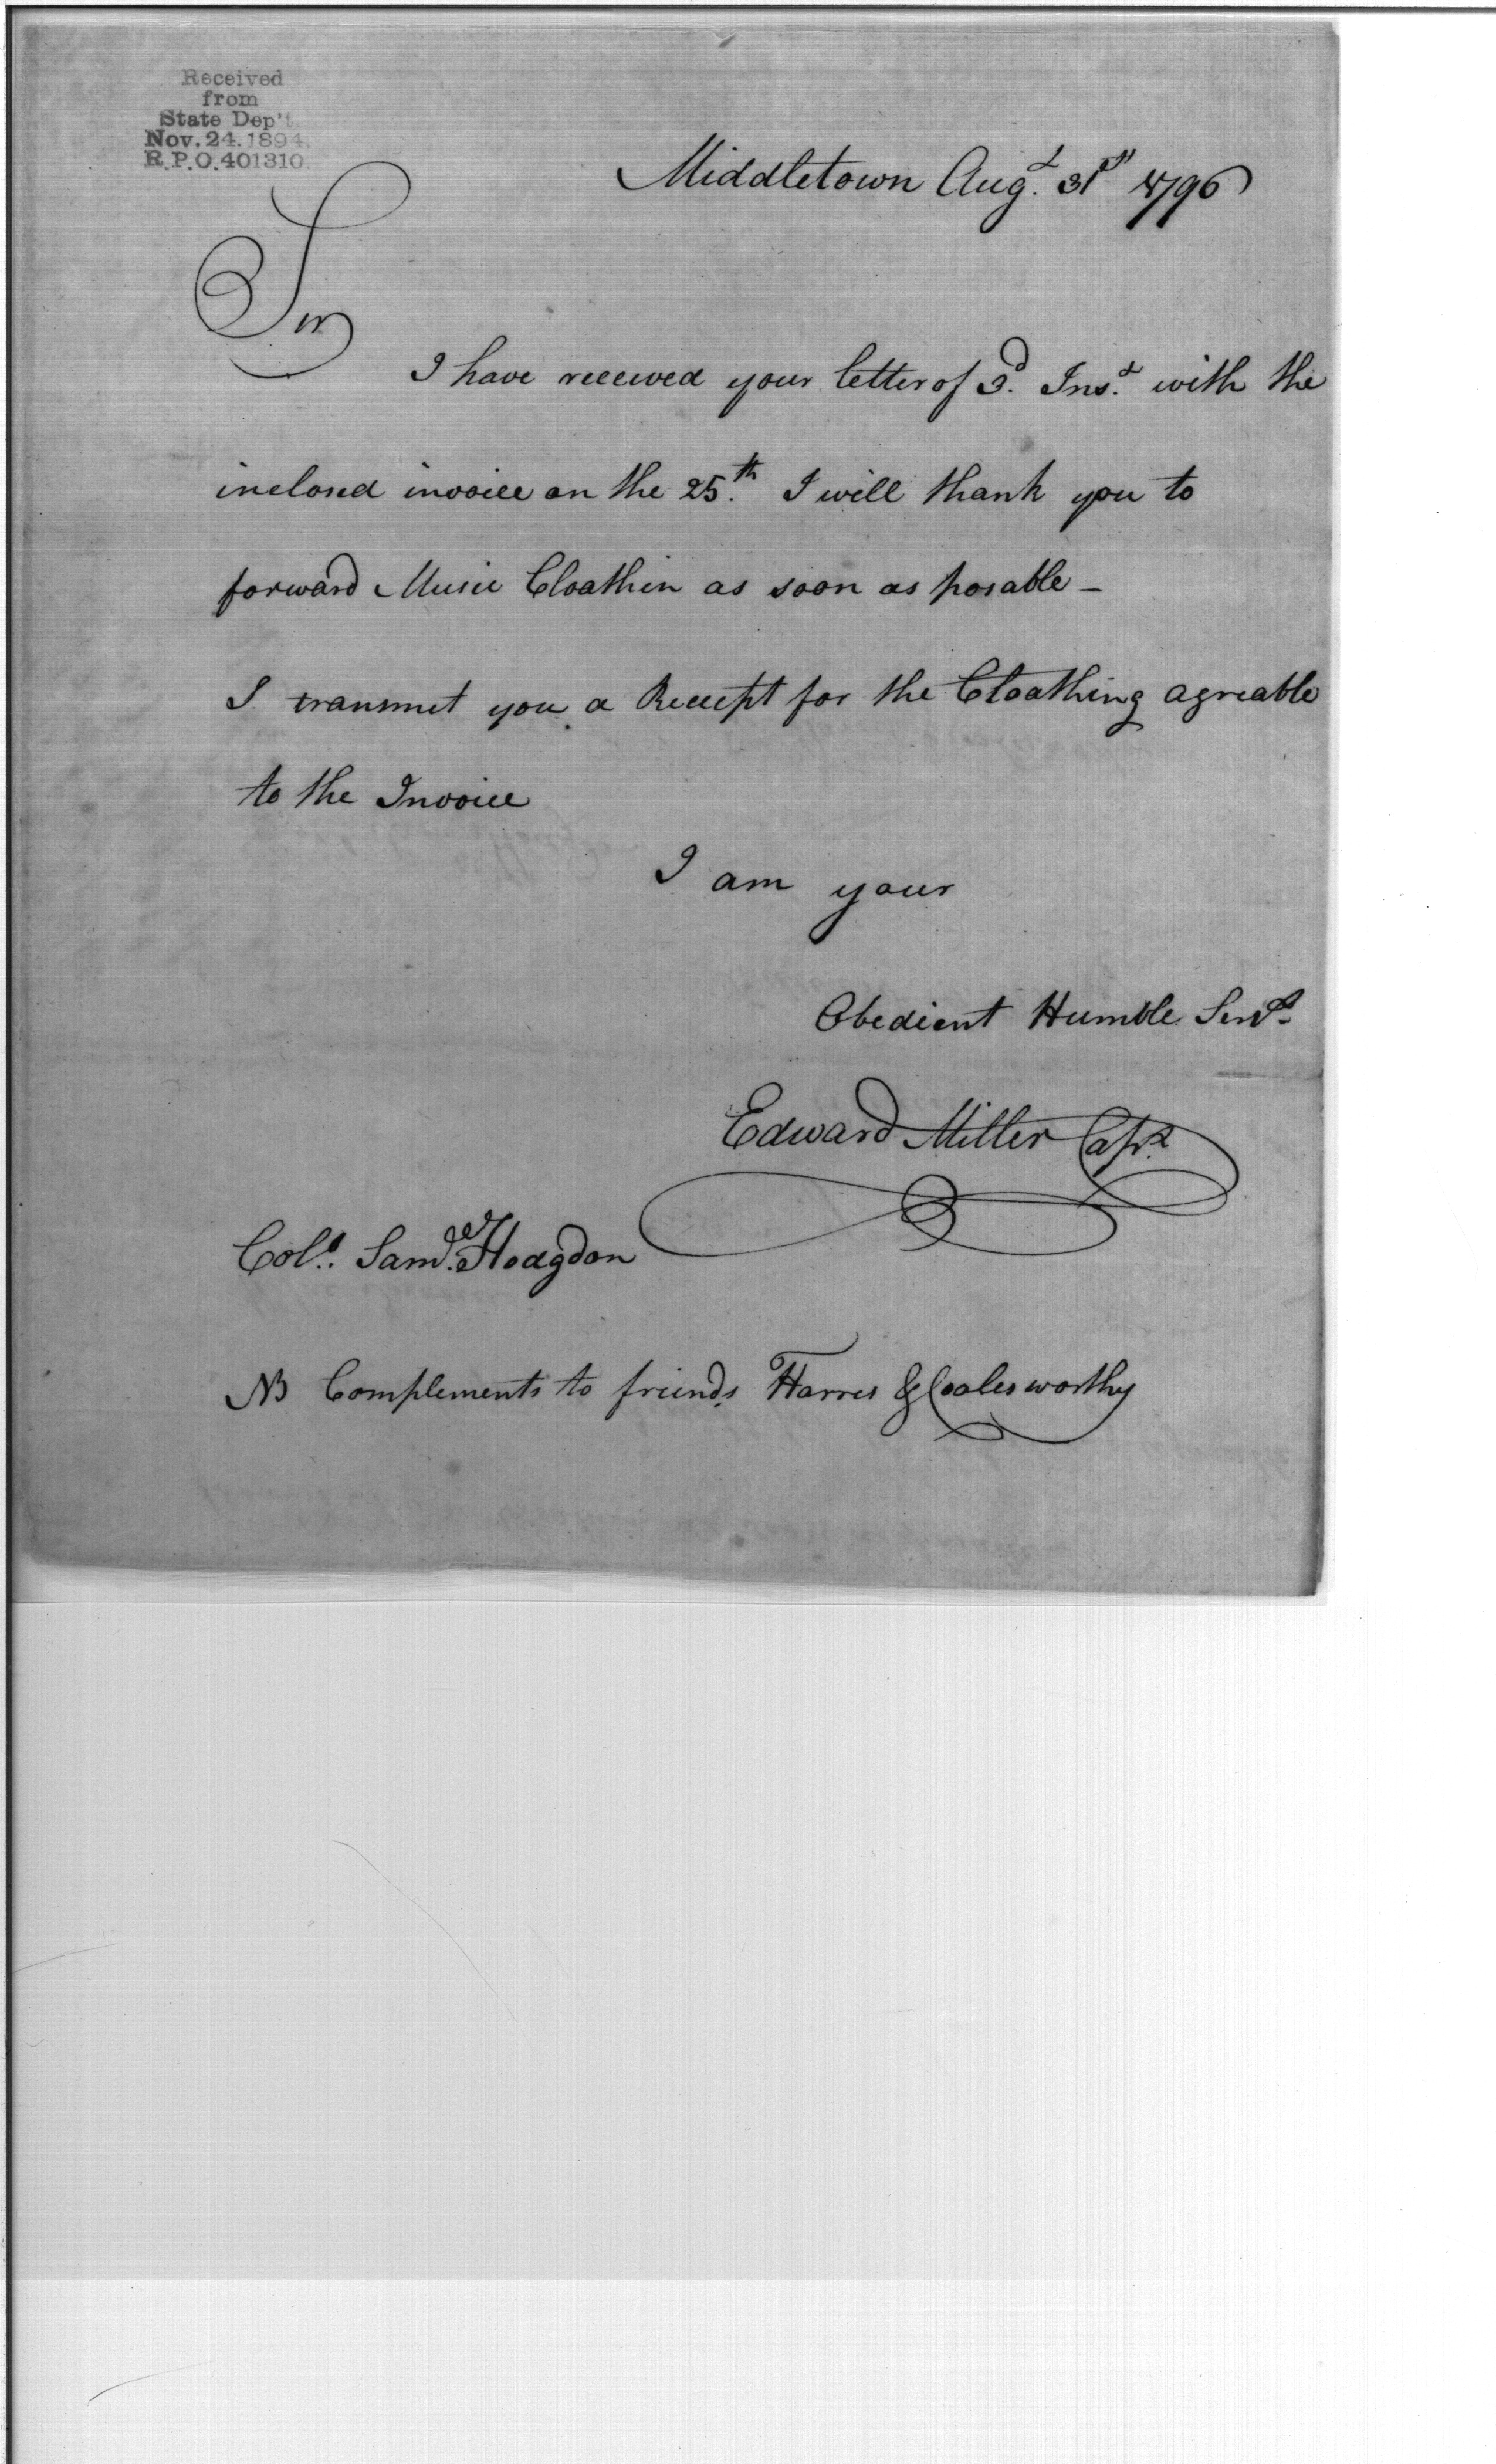 Received
from
State Dep't.
Nov. 24. 1894.
R.P.O. 401310.
Middletown Augt. 31st 1796
Sir
I have received your letter of 3d. Inst. with the
inclosed invoice on the 25.th I will thank you to
forward Music Cloathin as soon as posable –
I transmit you a Receipt for the Cloathing agreable
to the Invoice
I am your
Obedient Humble Servt.
Edward Miller Capt.
Coll. Saml. Hodgdon
NB Complements to friends Harres & Coalesworthy